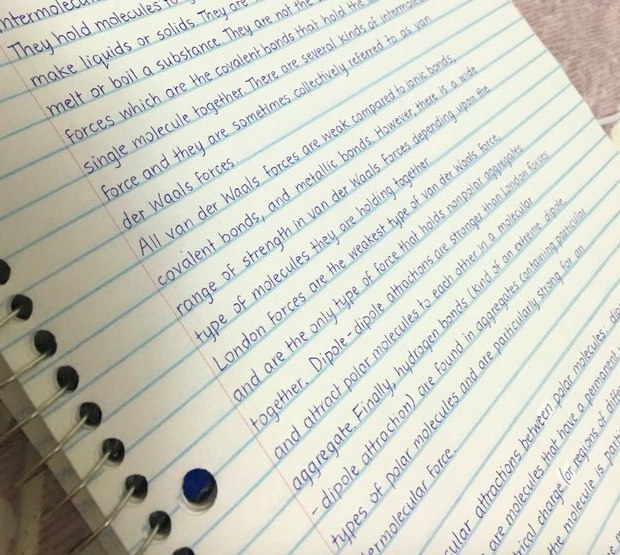 They hold molecules to
make liquids or solids. They are
melt or boil a substance. They are not the
forces which are the covalent bonds that hold the
single molecule together. There are several kinds of
force and they are sometimes collectively referred to as van
der Waals forces.
All van der Waals forces are weak compared to ionic bonds,
covalent bonds, and metallic bonds. However, there is a wide
range of strength in van der Waals forces depending upon the
type of molecules they are holding together.
London forces are the weakest type of van der Waals force,
and are the only type of force that holds nonpolar aggregates
together. Dipole-dipole attractions are stronger than London forces
and attract polar molecules to each other in a molecular
aggregate. Finally, hydrogen bonds (kind of an extreme dipole
-dipole attraction) are found in aggregates containing particular
types of polar molecules and are particularly strong for an
intermolecular force.
attractions between polar molecules:
are molecules that have a permanent
charge (or regions of
the molecule is